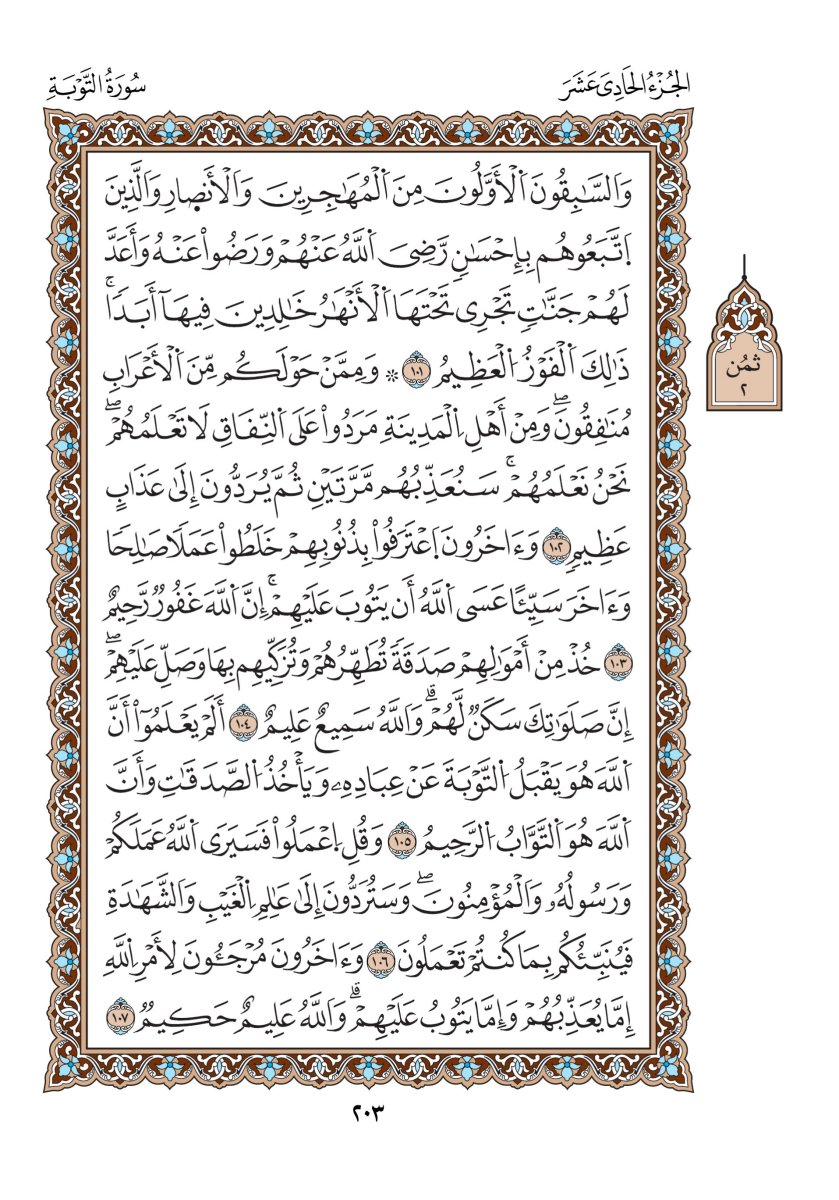 الجُزْءُ الحَادِى عَشَرَ
سُورَةُ التَّوْبَةِ
وَاَلسَّٰبِقُونَ اَلْأَوَّلُونَ مِنَ اَلْمُهَٰجِرِينَ وَالْأَنصِارِ وَالَّذِينَ
اِتَّبَعُوهُم بِإِحْسَٰنٖ رَّضِىَ اَللَّهُ عَنْهُمْ وَرَضُواْ عَنْهُ وَأَعَدَّ
لَهُمْ جَنَّٰتٖ تَجْرِى تَحْتَهَا اَلْأَنْهَٰرُ خَٰلِدِينَ فِيهَآ أَبَدٗاۚ
ذَٰلِكَ اَلْفَوْزُ اُلْعَظِيمُ ١٠١ ۞ وَمِمَّنْ حَوْلَكُم مِّنَ اَلْأَعْرَابِ
مُنَٰفِقُونَۖ وَمِنْ أَهْلِ اِلْمَدِينَةِ مَرَدُواْ عَلَى اَلنِّفَاقِ لَا تَعْلَمُهُمْۖ
نَحْنُ نَعْلَمُهُمْۚ سَنُعَذِّبُهُم مَّرَّتَيْنِ ثُمَّ يُرَدُّونَ إِلَىٰ عَذَابٍ
عَظِيمٖ ١٠٢ وَءَاخَرُونَ اَعْتَرَفُواْ بِذُنُوبِهِمْ خَلَطُواْ عَمَلٗا صَٰلِحٗا
وَءَاخَرَ سَيِّئًا عَسَى اَللَّهُ أَن يَتُوبَ عَلَيْهِمْۚ إِنَّ اَللَّهَ غَفُورٞ رَّحِيمٌ
١٠٣ خُذْ مِنْ أَمْوَٰلِهِمْ صَدَقَةٗ تُطَهِّرُهُمْ وَتُزَكِّيهِم بِهَا وَصَلِّ عَلَيْهِمْۖ
إِنَّ صَلَوَٰتِكَ سَكَنٞ لَّهُمْۗ وَاَللَّهُ سَمِيعٌ عَلِيمٌ ١٠٤ أَلَمْ يَعْلَمُوٓاْ أَنَّ
اَللَّهَ هُوَ يَقْبَلُ اُلتَّوْبَةَ عَنْ عِبَادِهِۦ وَيَأْخُذُ اُلصَّدَقَٰتِ وَأَنَّ
اَللَّهَ هُوَ اَلتَّوَّابُ اُلرَّحِيمُ ١٠٥ وَقُلِ اِعْمَلُواْ فَسَيَرَى اَللَّهُ عَمَلَكُمْ
وَرَسُولُهُۥ وَالْمُؤْمِنُونَۖ وَسَتُرَدُّونَ إِلَىٰ عَٰلِمِ اِلْغَيْبِ وَالشَّهَٰدَةِ
فَيُنَبِّئُكُم بِمَا كُنتُمْ تَعْمَلُونَ ١٠٦ وَءَاخَرُونَ مُرْجَـُٔونَ لِأَمْرِ اِللَّهِ
إِمَّا يُعَذِّبُهُمْ وَإِمَّا يَتُوبُ عَلَيْهِمْۗ وَاَللَّهُ عَلِيمٌ حَكِيمٌ ١٠٧
ثُمُن
٢
٢٠٣